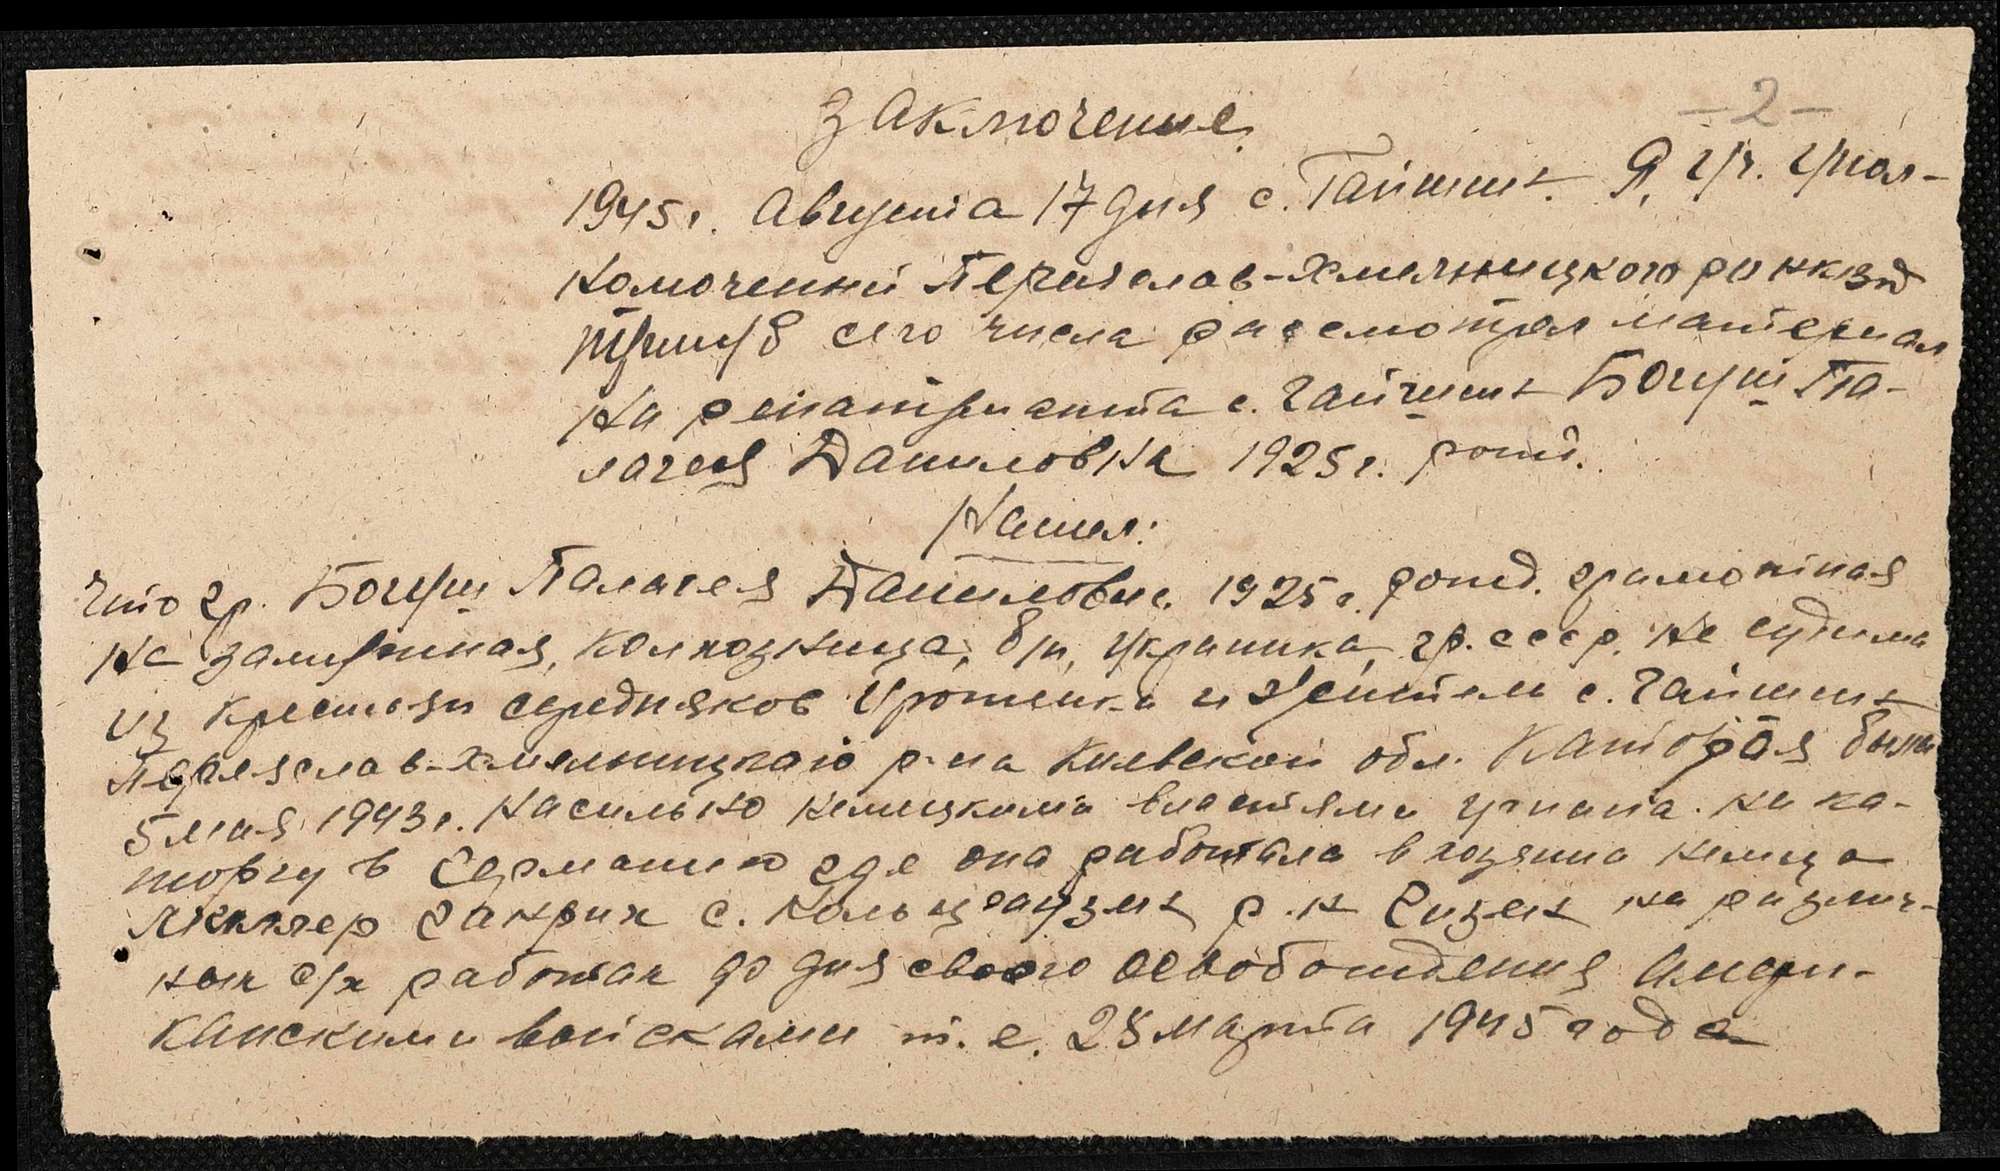 -2-
Заключение.
1945 г. Августа 17 дня с. Гайшин. Я, гр. упол-
номоченний Переяслав-Хмельницкого
сего числа рассмотрел материал
на репатрианта с. Гайшин Богуш Па-
лагея Даниловна 1925 г. рожд.
Нашел:
Что гр. Богуш Палагея Даниловна 1925 г. рожд. грамотная
не замужная, колхозница, б/п, украинка, гр. СССР, не судима
из крестьян середняков и жители с. Гайшин
Переяслав-Хмельницкого р-на Киевской обл. Катороя была
5 мая 1943 г. насильно немецкими властями угнана на ка-
торгу в Германию где она работала в хозяина немца
с. р.н на различ-
ных с/х работах до дня своего освобождения Амери-
канскими войсками т.е. 28 марта 1945 года